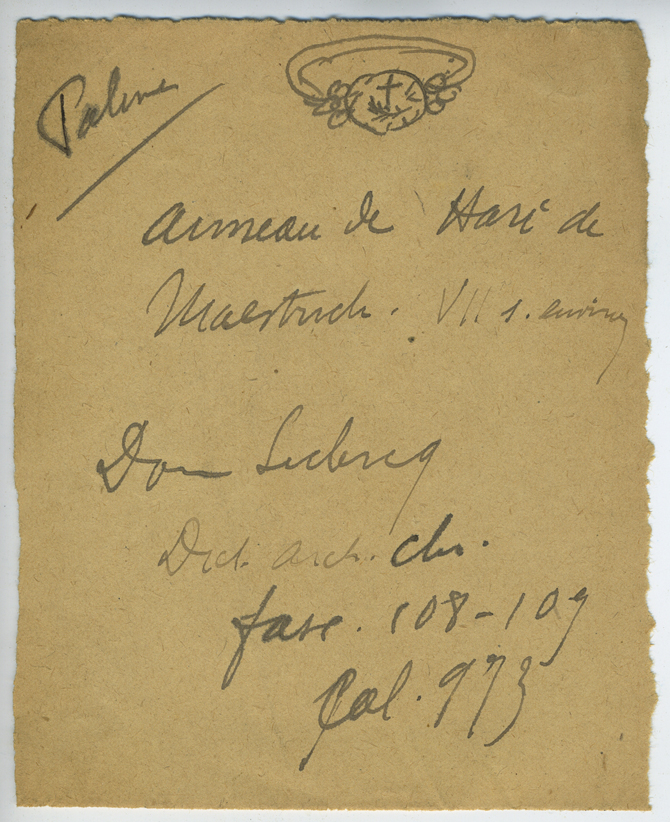 Palme
Anneau de Haré de
Maestrich. VII s. environ
Dom Leclercq
Dict. arch. chr.
fasc. 108-109
Col. 973